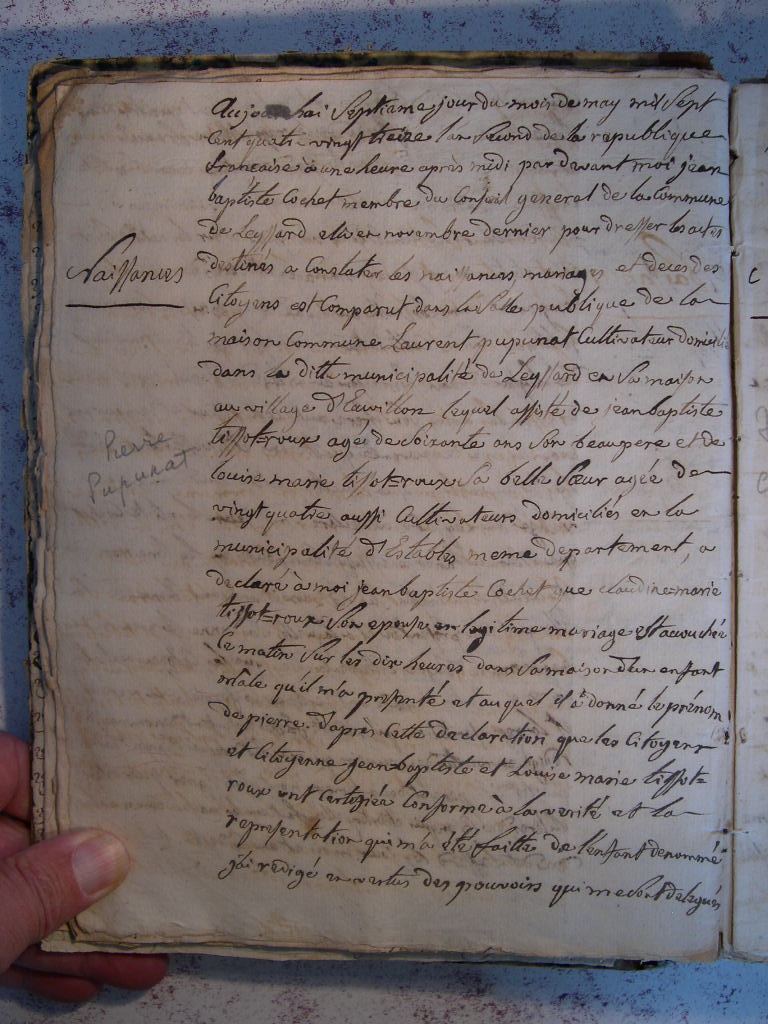 Aujourhui Septiame jour du mois de may mil Sept
Cent quatre vingt treize lan Second de la republique
francaise à une heure après midi par devant moi jean
baptiste Cochet membre du Conseil general de la Commune
de Leyssard elu en novembre dernier pour dresser les actes
Naissances
destinés a Constater les naissances mariages et deces des
Citoyens est Comparut dans la Salle publique de la
maison Commune Laurent pupunat Cultivateur domicilié
dans la ditte municipalité de Leyssard en Sa maison
au village d'Eawillon lequel assisté de jean baptiste
Pierre
Pupunat
tissot=roux agé de Soixante ans Son beaupere et de
louise marie tissot=roux Sa belle Sœur agée de
vingt quatre aussi Cultivateurs domiciliés en la
municipalité d'Estables meme departement, a
declaré à moi jean baptiste Cochet que claudine=marie
tissot=roux Son epouse en legitime mariage est acouchée
Ce matin Sur les dix heures dans Sa maison d'un enfant
mâle qu'il m'a presenté et auquel il à donné le prénom
de pierre. d'après Cette declaration que les Citoyens
et Citoyenne jean baptiste et Louise marie tissot=
roux ont Certifiéa Conforme à la verité et la
representation qui m'a été faitte de l'enfant denommé
j'ai redigé en vertus des pouvoirs qui me sont delegués